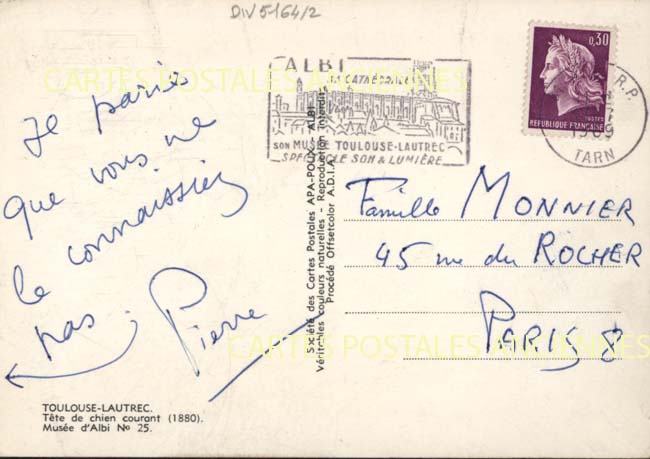 DIV 5164/2
ALBI
SA CATHÉDRALE
SON MUSÉE TOULOUSE-LAUTREC
SPECTACLE SON & LUMIÈRE
0,30
POSTES
REPUBLIQUE FRANÇAISE
R.P.
TARN
CARTES POSTALES ANCIENNES
Je parie
que vous ne
le connaissiez
pas.
Pierre
Société des Cartes Postales APA-POUX - ALBI
Véritables couleurs naturelles - Reproduction interdite
Procédé Offsetcolor A.D.I.A.
Famille MONNIER
45 rue du ROCHER
PARIS 8
CARTES POSTALES ANCIENNES
TOULOUSE-LAUTREC.
Tête de chien courant (1880).
Musée d'Albi No 25.